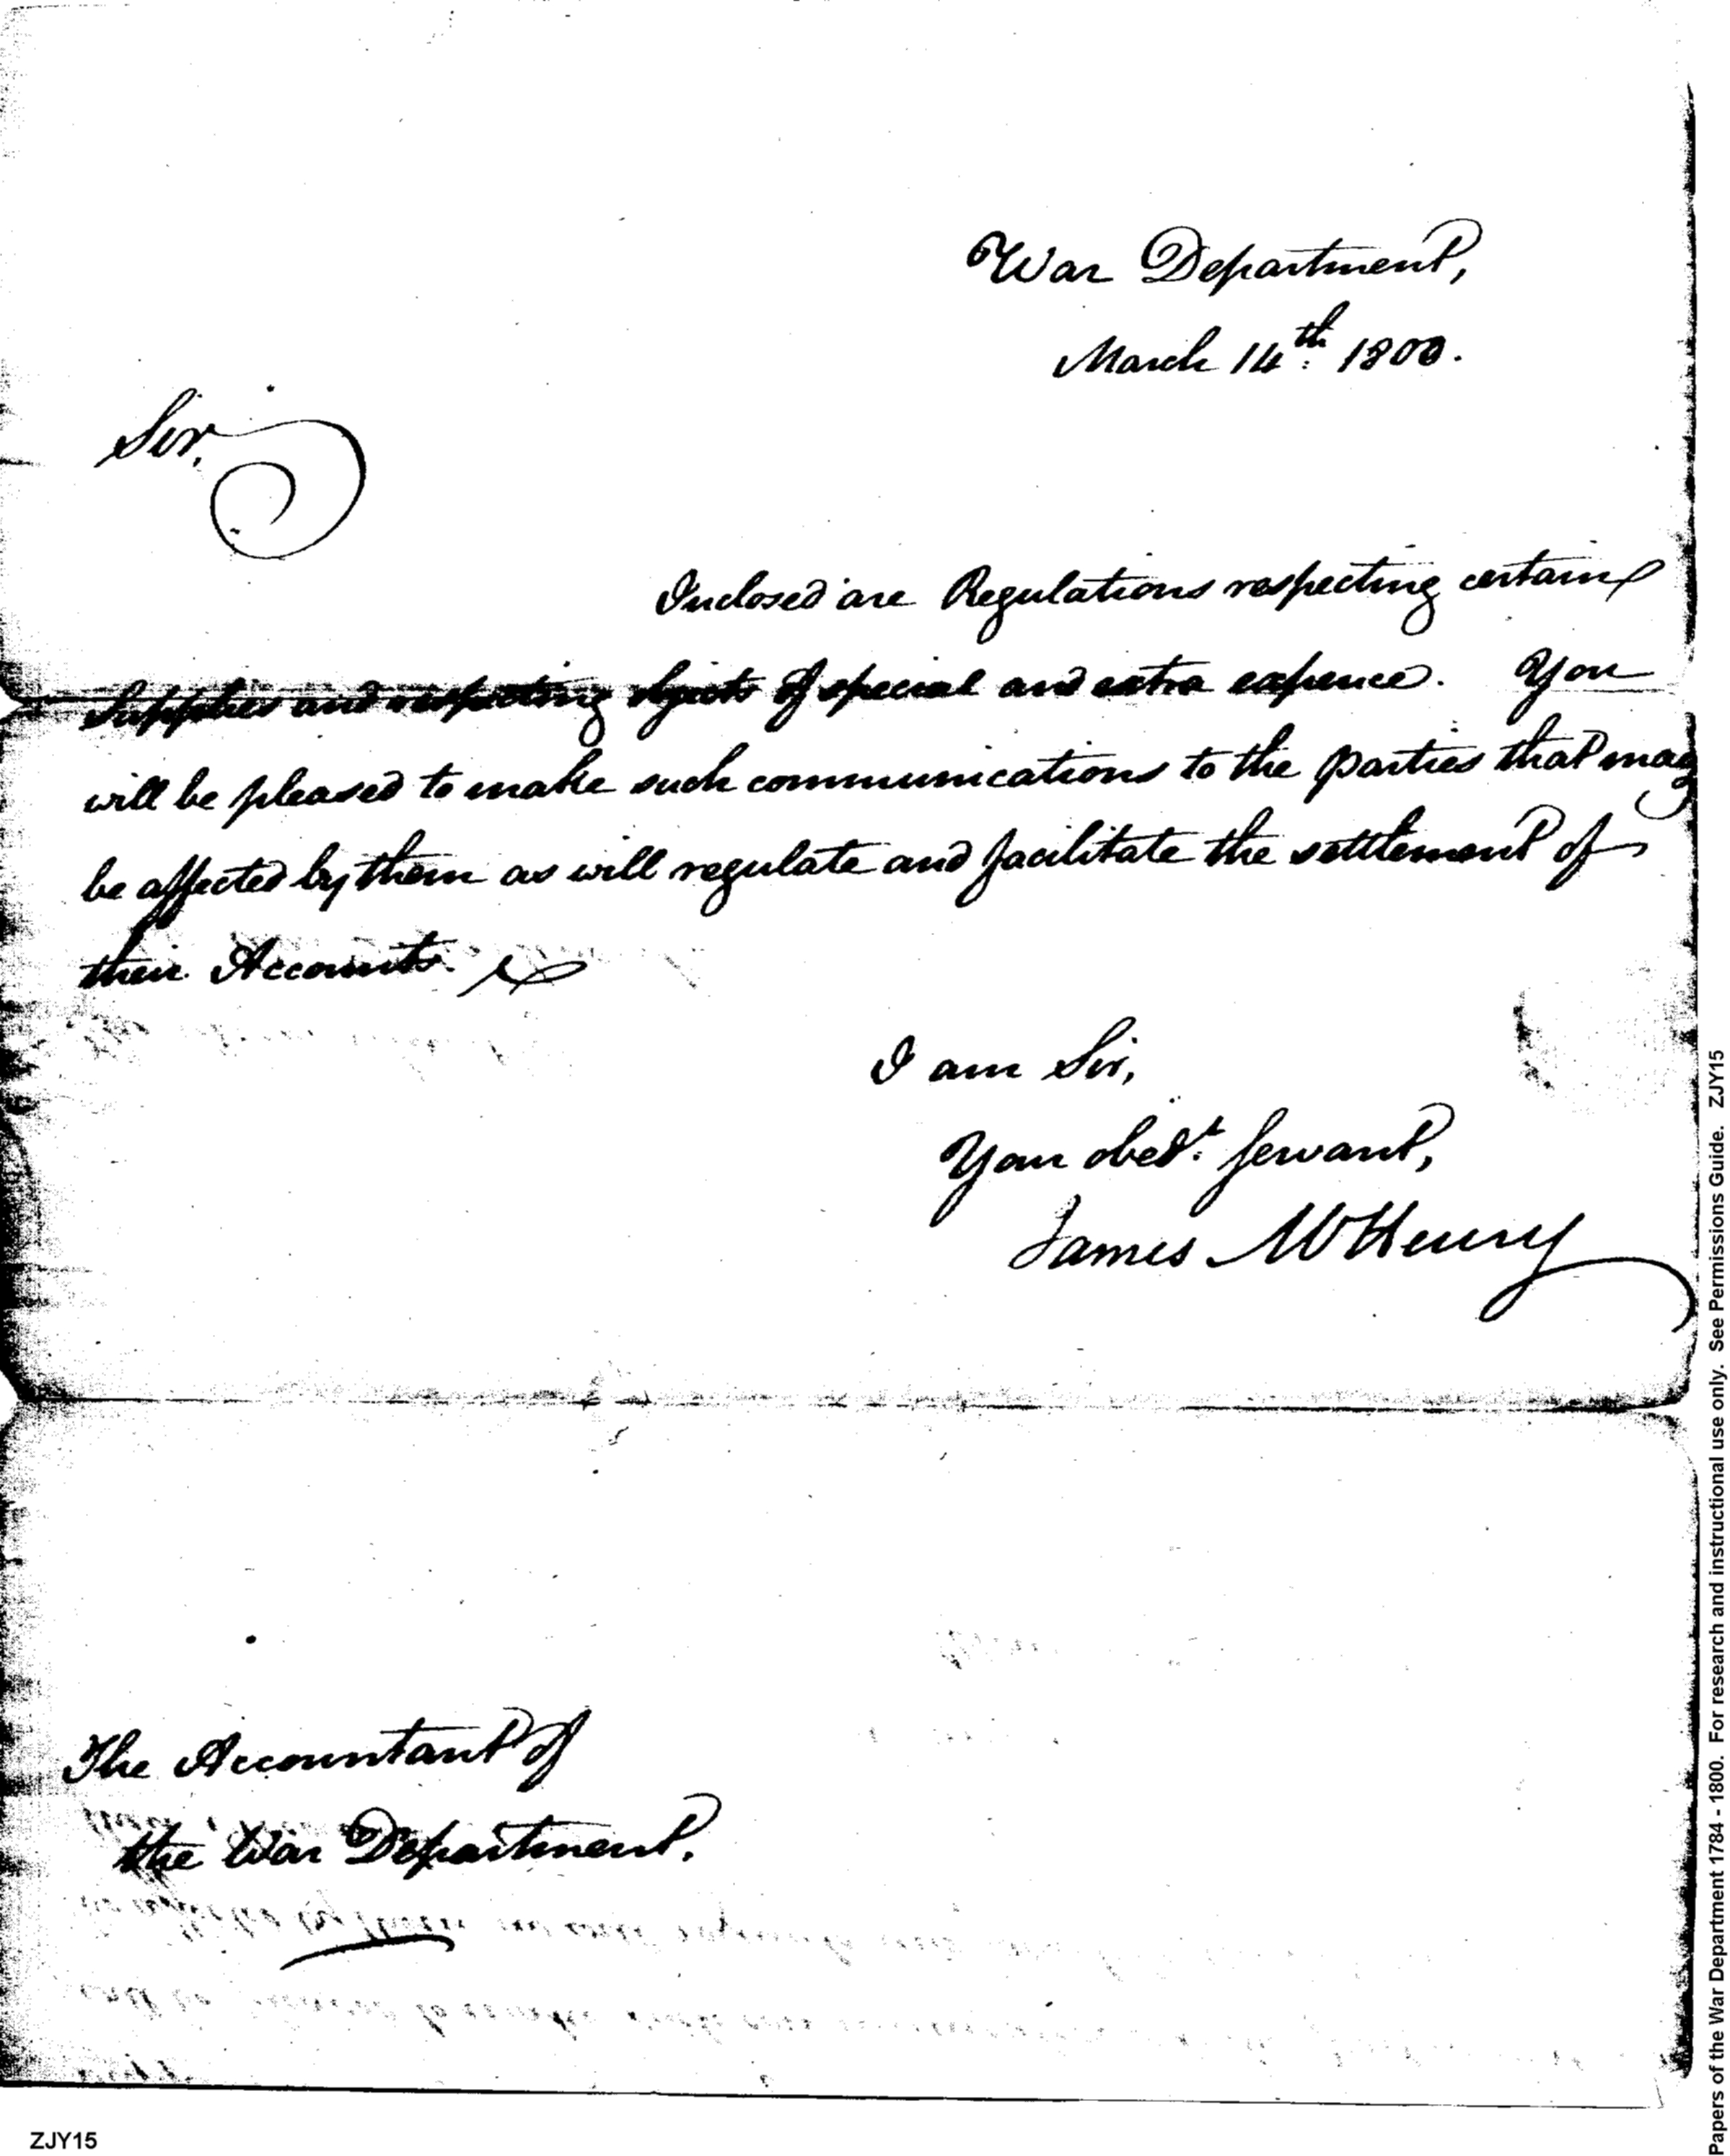 War Department,
March 14th. 1800.
Sir,
Inclosed are Regulations respecting certain
Supplies and respecting objects of special and extra expence. You
will be pleased to make such communications to the parties that may
be affected by them as will regulate and facilitate the settlement of
their Accounts.
I am Sir,
Your obedt. servant,
James McHenry
The Accountant of
the War Department.
ZJY15
Papers of the War Department 1784 - 1800. For research and instructional use only. See Permissions Guide. ZJY15